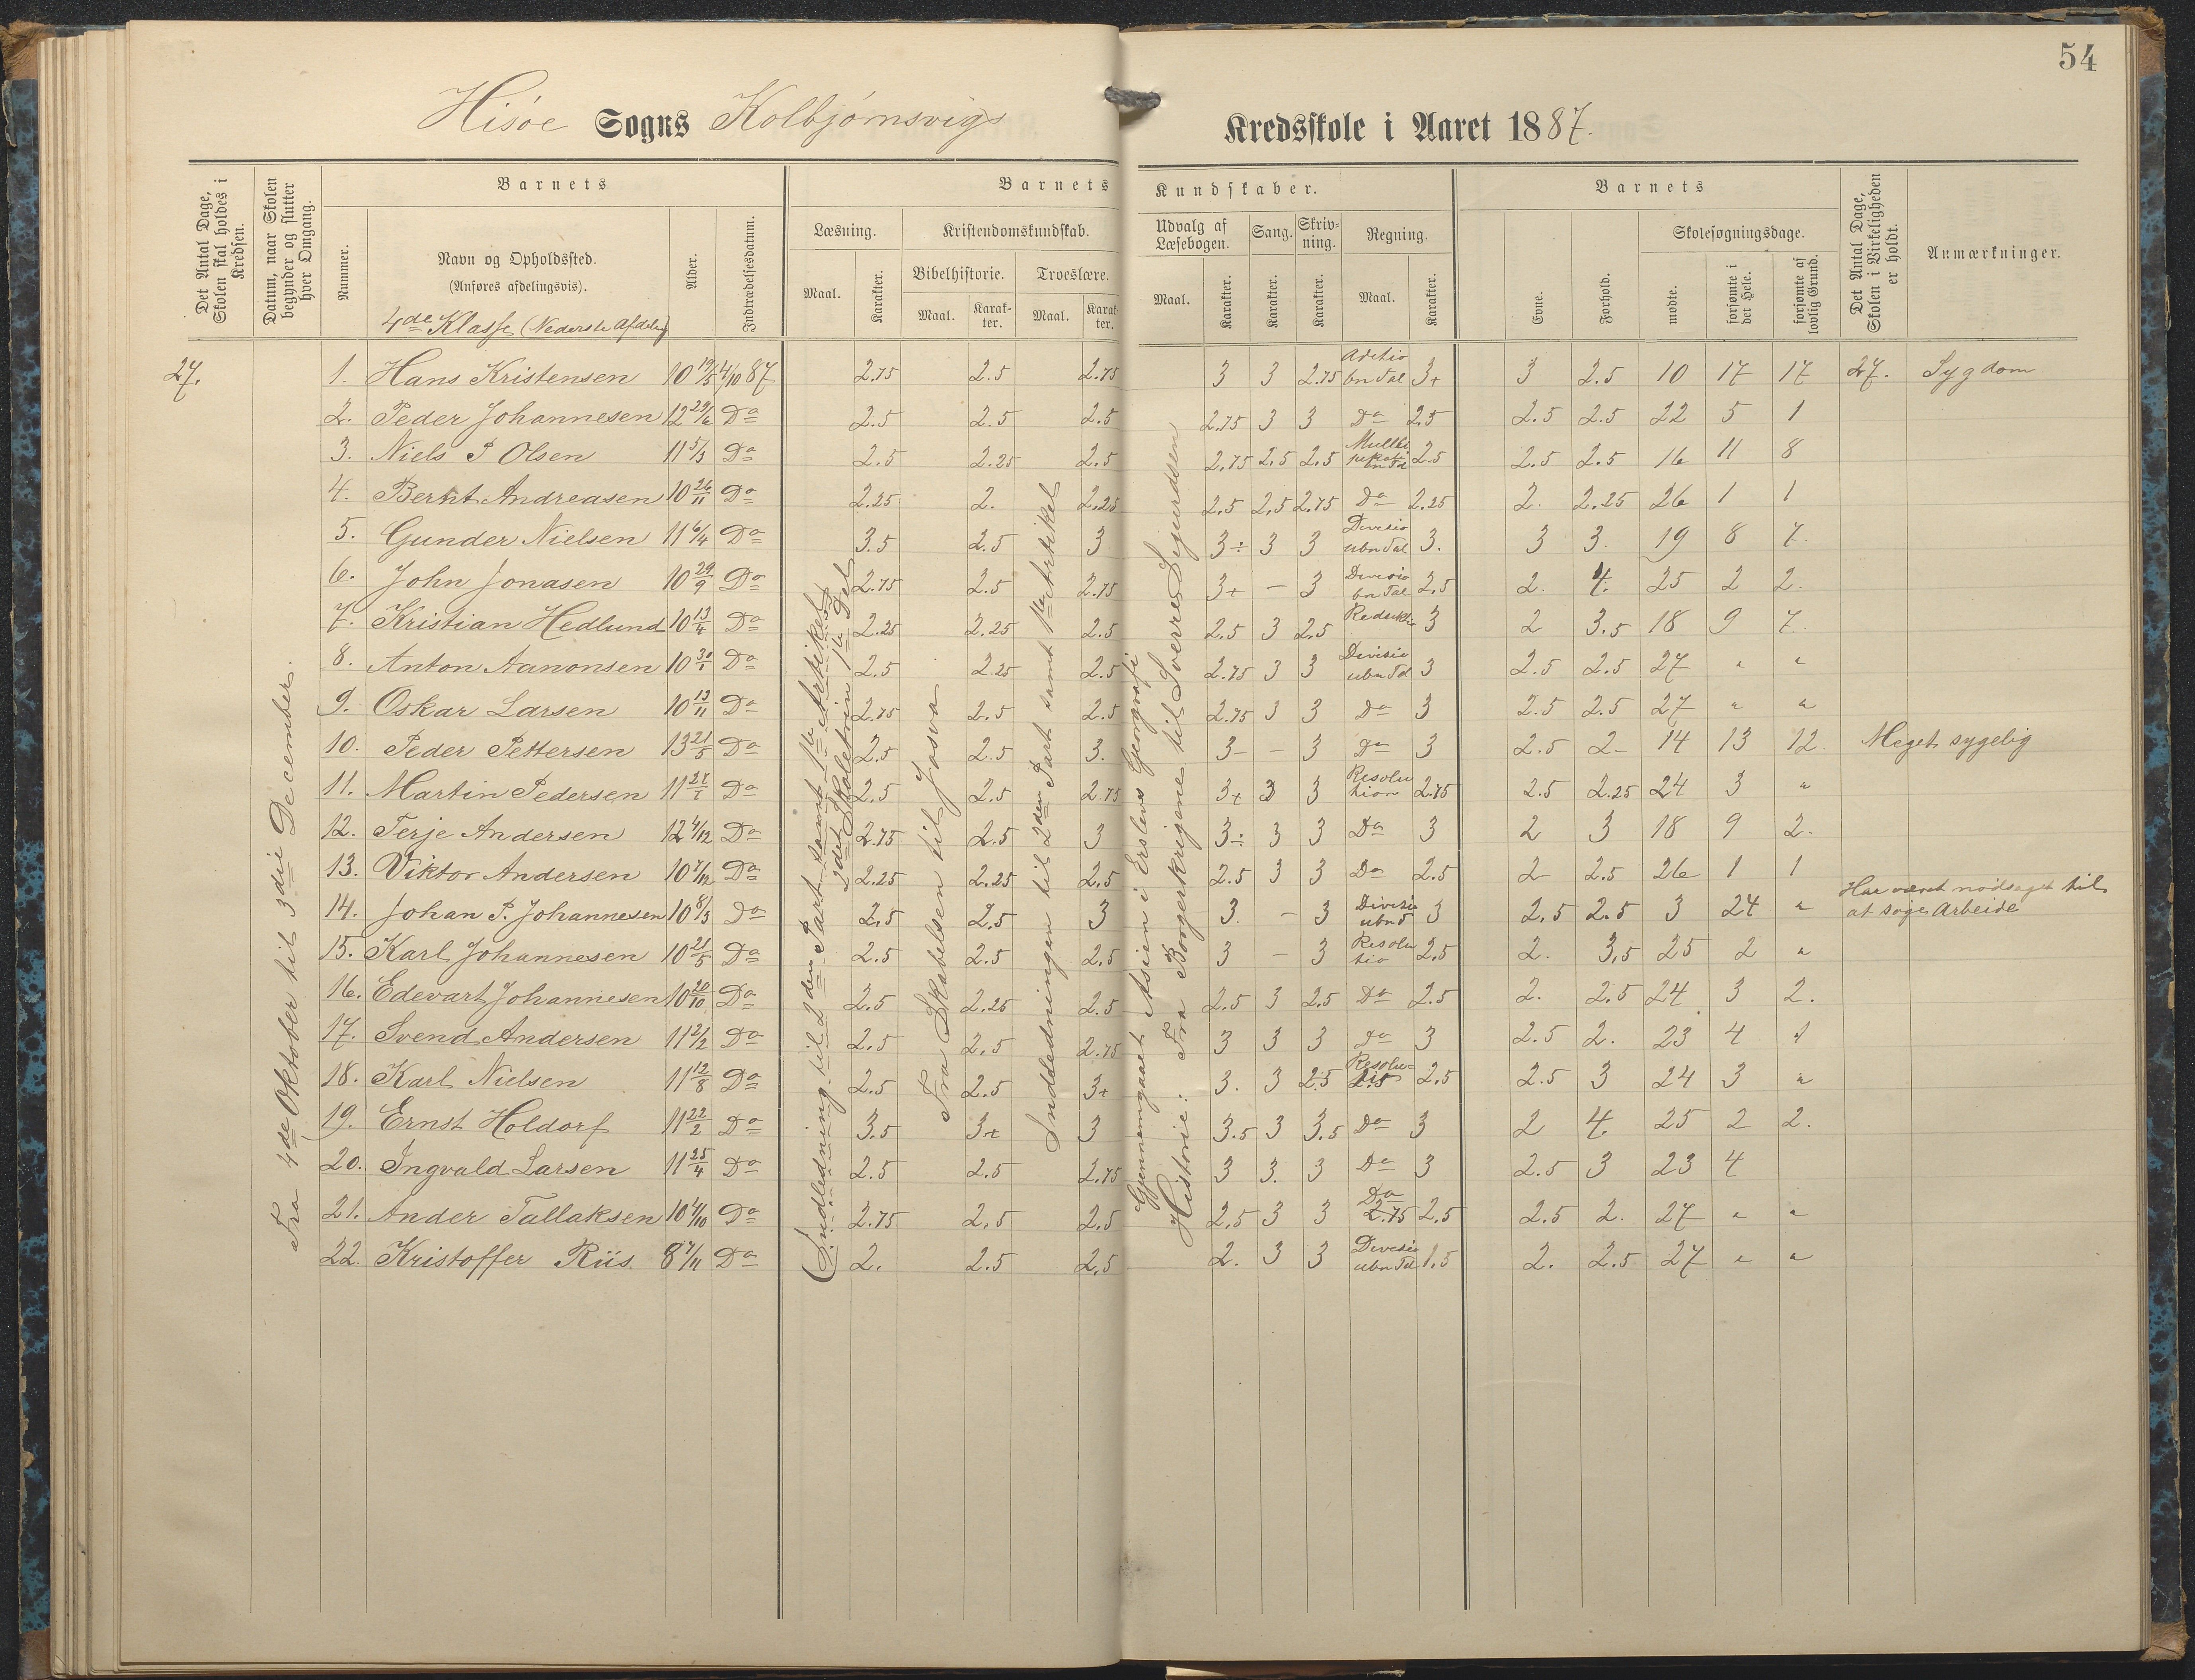 54
Hisøe Sogns Kolbjørnsvigs Kredsskole i Aaret 1887.
Det Antal Dage, Skolen skal holdes i Kredsen.
Datum, naar Skolen begynder og slutter hver Omgang.
Barnets
Nummer.
Navn og Opholdssted.
(Anføres afdelingsvis).
4de Klasse (Nederste Afdeling)
Alder.
Indtrædelsesdatum.
Barnets Kundskaber.
Læsning.
Maal. Karakter.
Kristendomskundskab.
Bibelhistorie. Troeslære.
Maal. Karakter. Maal. Karakter.
Udvalg af Læsebogen. Sang. Skrivning. Regning.
Maal. Karakter. Karakter. Karakter. Maal. Karakter.
Barnets
Evne. Forhold.
Skolesøgningsdage.
mødte. forsømte i det Hele. forsømte af lovlig Grund.
Det Antal Dage, Skolen i Virkeligheden er holdt.
Anmærkninger.
27.
Fra 4de Oktober til 3die December.
Indledning til 2den Part samt 1ste Artikel
2det Skoletrin 1ste Del
Fra Skabelsen til Josva
Indledningen til 2den Part samt 1ste Artikel
Gjennemgaaet Asien i Erslevs Geografi
Historie: Fra Borgerkrigene til Sverre Sigurdssen
1. Hans Kristensen 10 19/5 4/10 87 2.75 2.5 2.75 3 3 2.75 Aditio bn Tal 3+ 3 2.5 10 17 17 27. Sygdom
2. Peder Johannesen 12 29/6 Do 2.5 2.5 2.5 2.75 3 3 Do 2.5 2.5 2.5 22 5 1
3. Niels P Olsen 11 5/3 Do 2.5 2.25 2.5 2.75 2.5 2.5 Multiplikatio bn Tal 2.5 2.5 2.5 16 11 8
4. Bernt Andreasen 10 26/11 Do 2.25 2. 2.25 2.5 2.5 2.75 Do 2.25 2. 2.25 26 1 1
5. Gunder Nielsen 11 6/4 Do 3.5 2.5 3 3÷ 3 3 Divisio ubn Tal 3. 3 3. 19 8 7.
6. John Jonasen 10 29/9 Do 2.75 2.5 2.75 3+ – 3 Divisio bn Tal 2.5 2. 4. 25 2 2.
7. Kristian Hedlund 10 13/4 Do 2.25 2.25 2.5 2.5 3 2.5 Reduktio 3 2 3.5 18 9 7.
8. Anton Aanonsen 10 30/1 Do 2.5 2.25 2.5 2.75 3 3 Divisio ubn Tal 3 2.5 2.5 27 " "
9. Oskar Larsen 10 13/11 Do 2.75 2.5 2.5 2.75 3 3 Do 3 2.5 2.5 27 " "
10. Peder Pettersen 13 21/5 Do 2.5 2.5 3. 3– – 3 Do 3 2.5 2– 14 13 12. Meget sygelig
11. Martin Pedersen 11 27/1 Do 2.5 2.5 2.75 3+ 3 3 Resolution 2.75 2.5 2.25 24 3 "
12. Terje Andersen 12 4/12 Do 2.75 2.5 3 3÷ 3 3 Do 3 2 3 18 9 2.
13. Viktor Andersen 10 7/12 Do 2.25 2.25 2.5 2.5 3 3 Do 2.5 2 2.5 26 1 1
14. Johan P. Johannesen 10 8/3 Do 2.5 2.5 3 3. – 3 Divisio ubn T 3 2.5 2.5 3 24 " Har været nødsaget til at søge Arbeide
15. Karl Johannesen 10 21/5 Do 2.5 2.5 2.5 3 – 3 Resolutio 2.5 2. 3.5 25 2 "
16. Edevart Johannesen 10 20/10 Do 2.5 2.25 2.5 2.5 3 2.5 Do 2.5 2. 2.5 24 3 2.
17. Svend Andersen 11 2/2 Do 2.5 2.5 2.75 3 3 3 Do 3 2.5 2. 23 4 1
18. Karl Nielsen 11 12/8 Do 2.5 2.5 3+ 3. 3 2.5 Resolutio 2.5 2.5 3 24 3 "
19. Ernst Holdorf 11 22/2 Do 3.5 3+ 3 3.5 3 3.5 Do 3 2 4. 25 2 2.
20. Ingvald Larsen 11 25/4 Do 2.5 2.5 2.75 3 3. 3 Do 3 2.5 3 23 4
21. Ander Tallaksen 10 4/10 Do 2.75 2.5 2.5 2.5 3 3 Do 2.75 2.5 2.5 2. 27 " "
22. Kristoffer Riis. 8 7/11 Do 2. 2.5 2.5 2. 3 3 Divisio ubn Tal 1.5 2. 2.5 27 " "